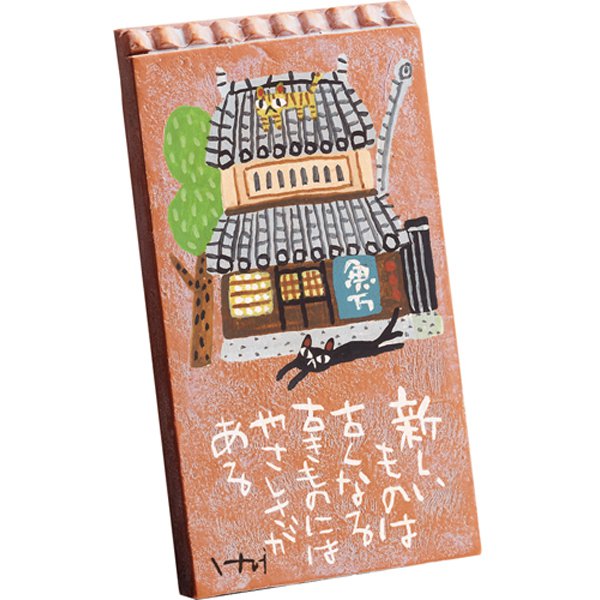 魚
新しい
ものは
古くなる
古きものには
やさしさが
ある